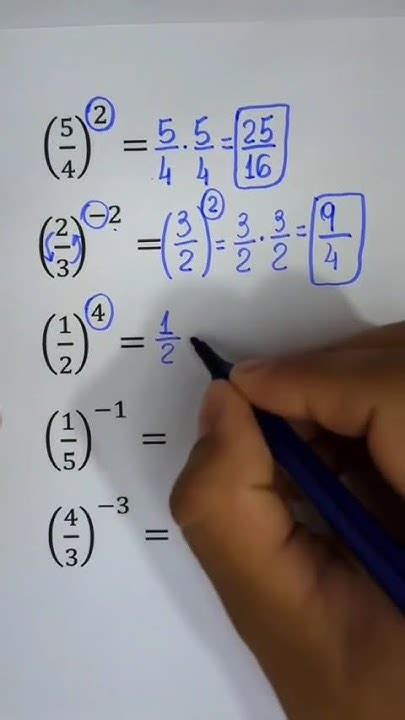 (5/4)^2 = 5/4 · 5/4 = 25/16
(2/3)^-2 = (3/2)^2 = 3/2 · 3/2 = 9/4
(1/2)^4 = 1/2
(1/5)^-1 =
(4/3)^-3 =